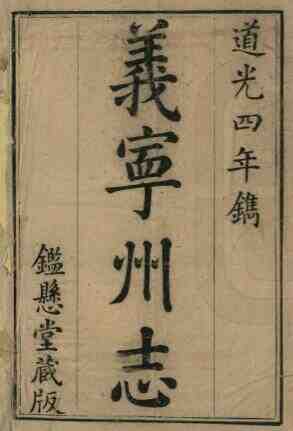 道光四年鐫
義寧州志
鑑懸堂藏版